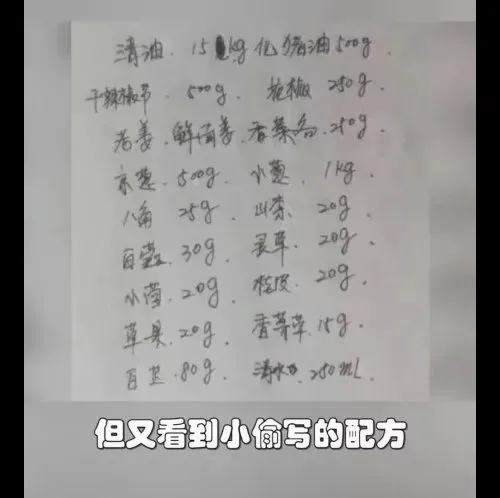 清油. 15kg 化猪油500g.
干辣椒节. 500g. 花椒 250g.
老姜. 鲜 姜. 香菜各. 250g.
京葱. 500g. 小葱. 1kg.
八角 25g. 山柰 20g.
白蔻. 30g. 灵草. 20g.
小茴. 20g. 桂皮. 20g.
草果. 20g. 香茅草. 15g.
白 . 80g. 清水 . 250mL.
但又看到小偷写的配方